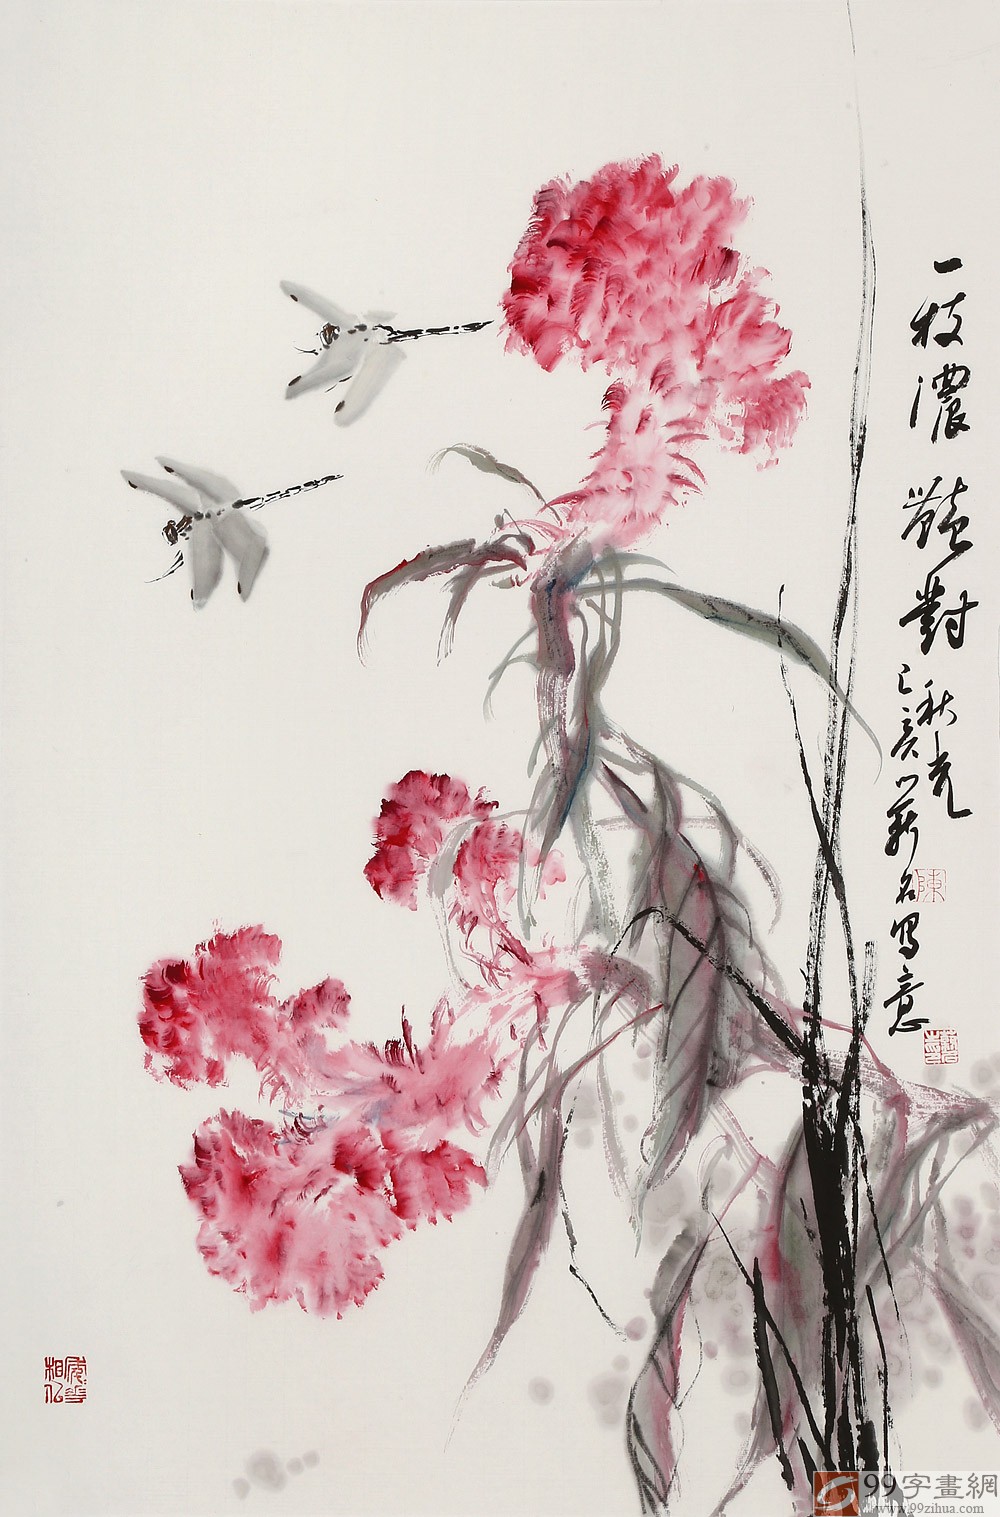 一枝濃豔對秋光
己亥薪名写意
陳
99字畫網
www.99zihua.com